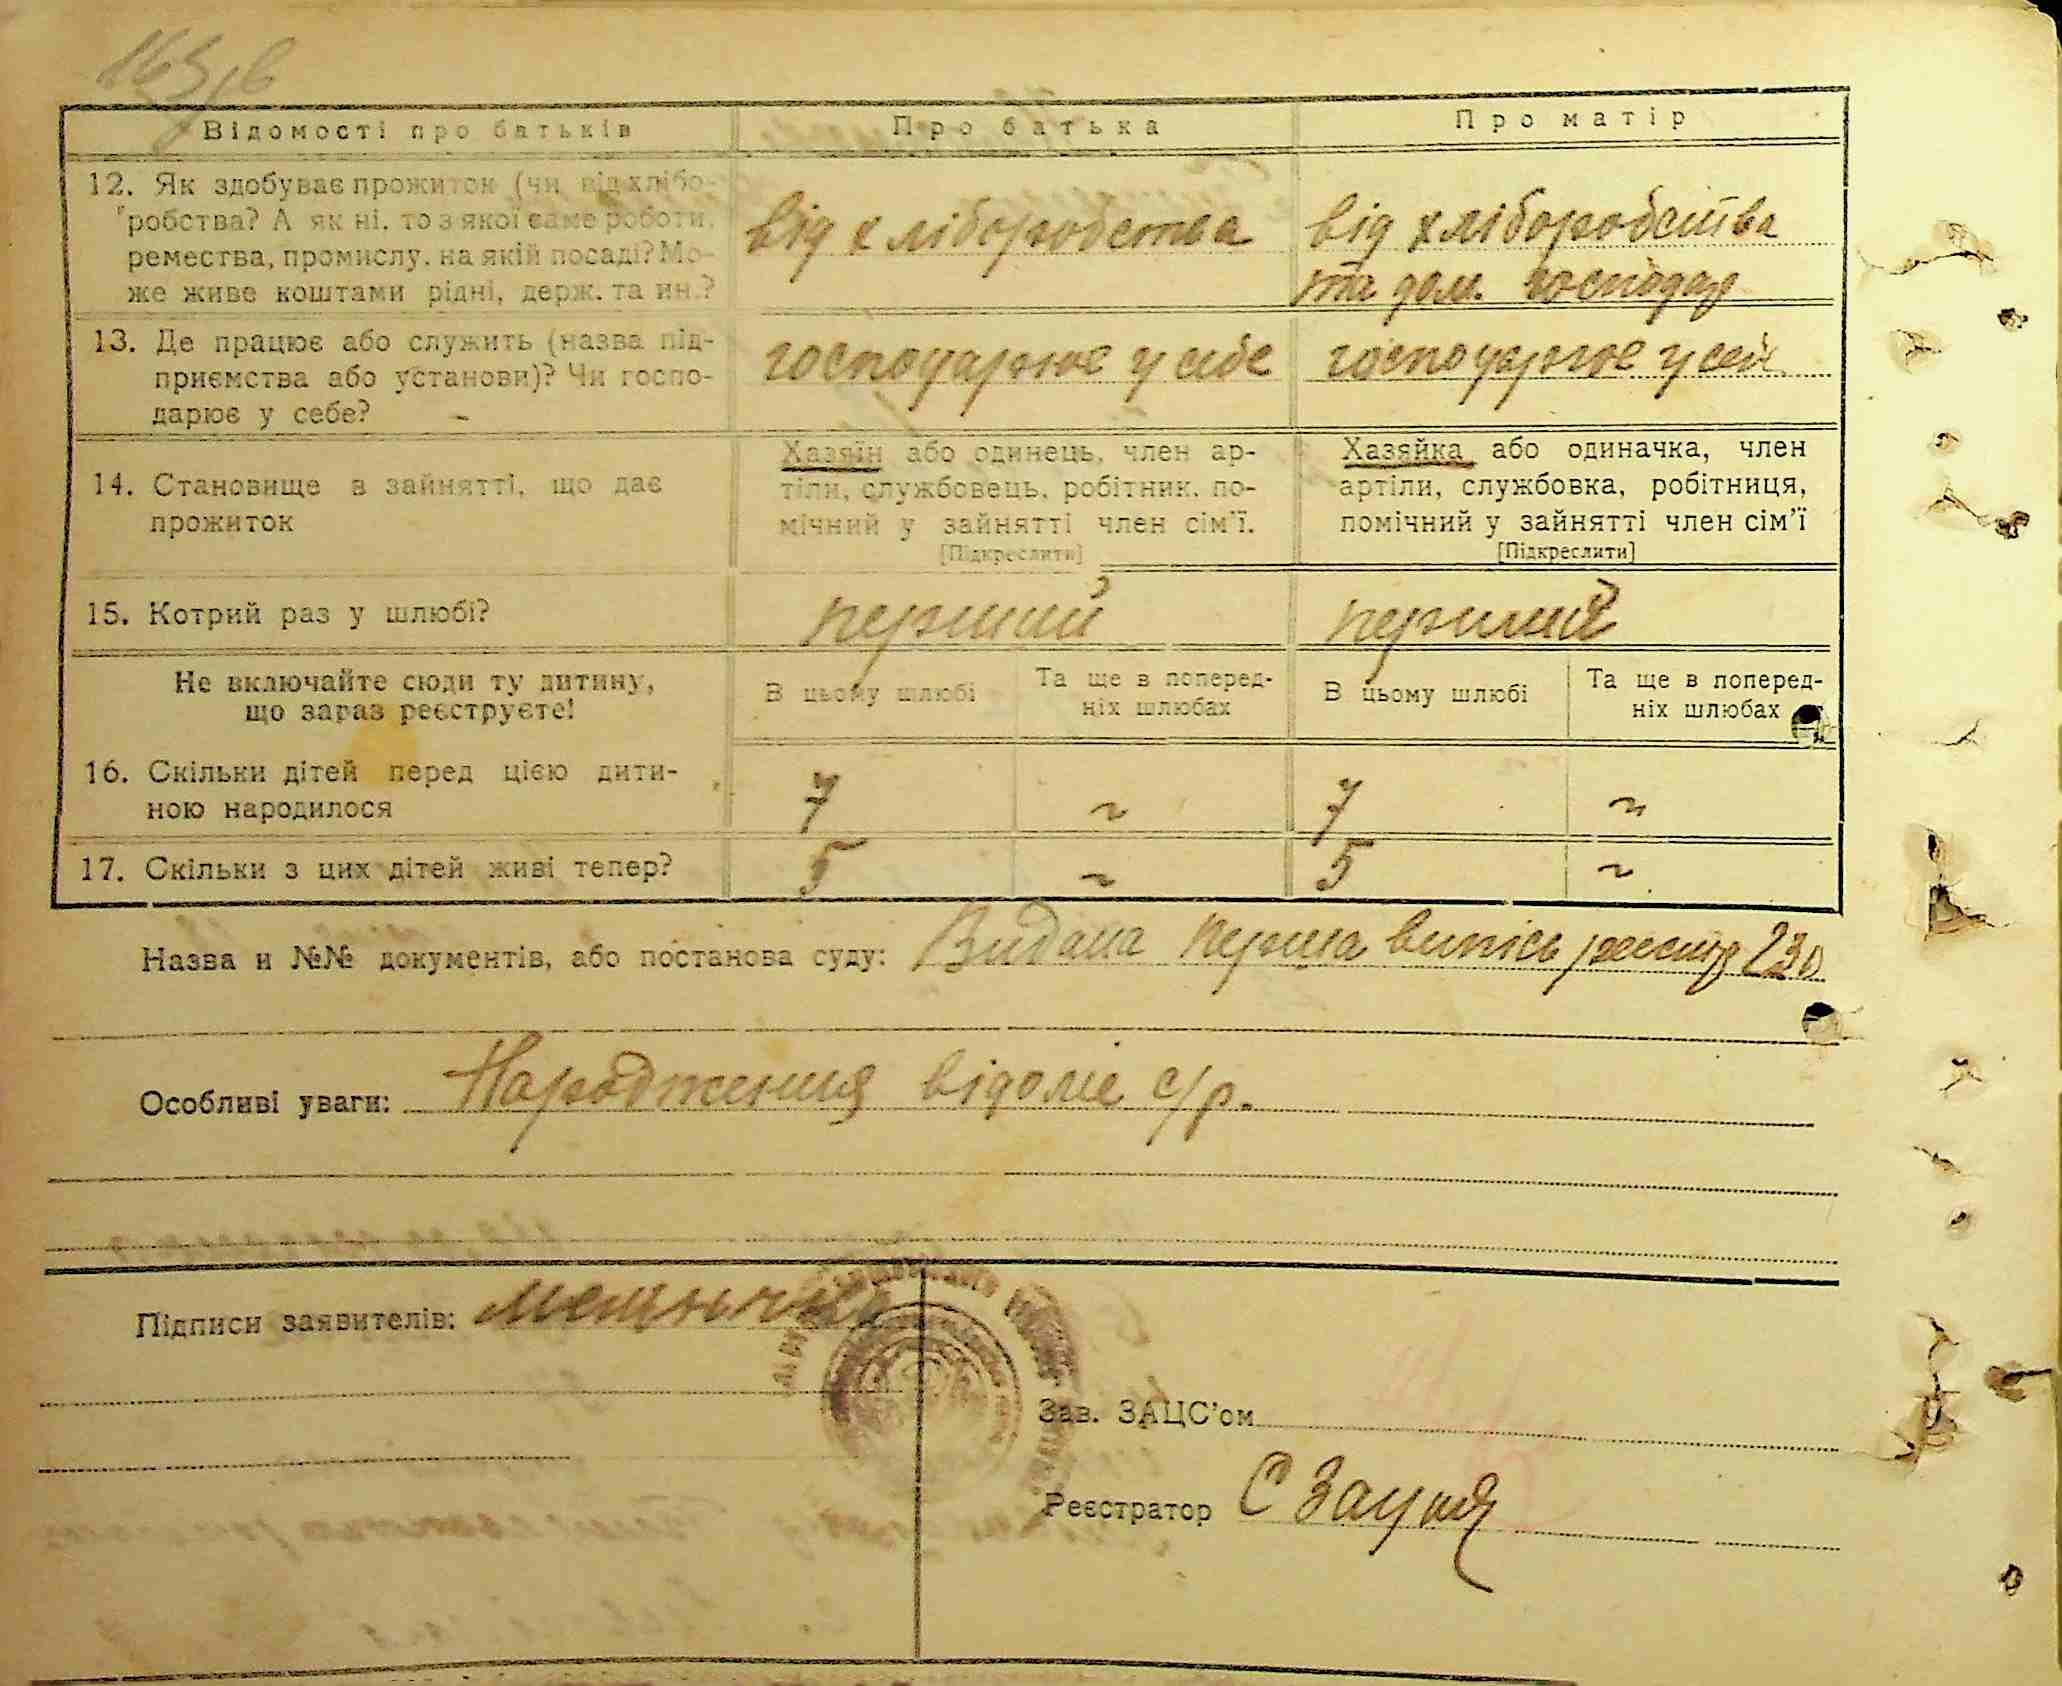 Відомості про батьків
Про батька
Про матір
12. Як здобуває прожиток (чи від хлібо-
робства? А як ні, то з якої саме роботи,
ремества, промислу, на якій посаді? Мо-
же живе коштами рідні, держ. та ин.?
від хліборобства
від хліборобства
та дом. господар
13. Де працює або служить (назва під-
приємства або установи)? Чи госпо-
дарює у себе?
господарює у себе
господарює у себе
14. Становище в зайнятті, що дає
прожиток
Хазяїн або одинець, член ар-
тіли, службовець, робітник, по-
мічний у зайнятті член сім'ї.
[Підкреслити]
Хазяйка або одиначка, член
артіли, службовка, робітниця,
помічний у зайнятті член сім'ї
[Підкреслити]
15. Котрий раз у шлюбі?
перший
перший
Не включайте сюди ту дитину,
що зараз реєструєте!
В цьому шлюбі
Та ще в поперед-
ніх шлюбах
В цьому шлюбі
Та ще в поперед-
ніх шлюбах
16. Скільки дітей перед цією дити-
ною народилося
7
~
7
~
17. Скільки з цих дітей живі тепер?
5
~
5
~
Назва и №№ документів, або постанова суду: Видана перша випись реєстр 230
Особливі уваги: Народження відоме с/р.
Підписи заявителів:
Зав. ЗАЦС'ом
Реєстратор С Зацня